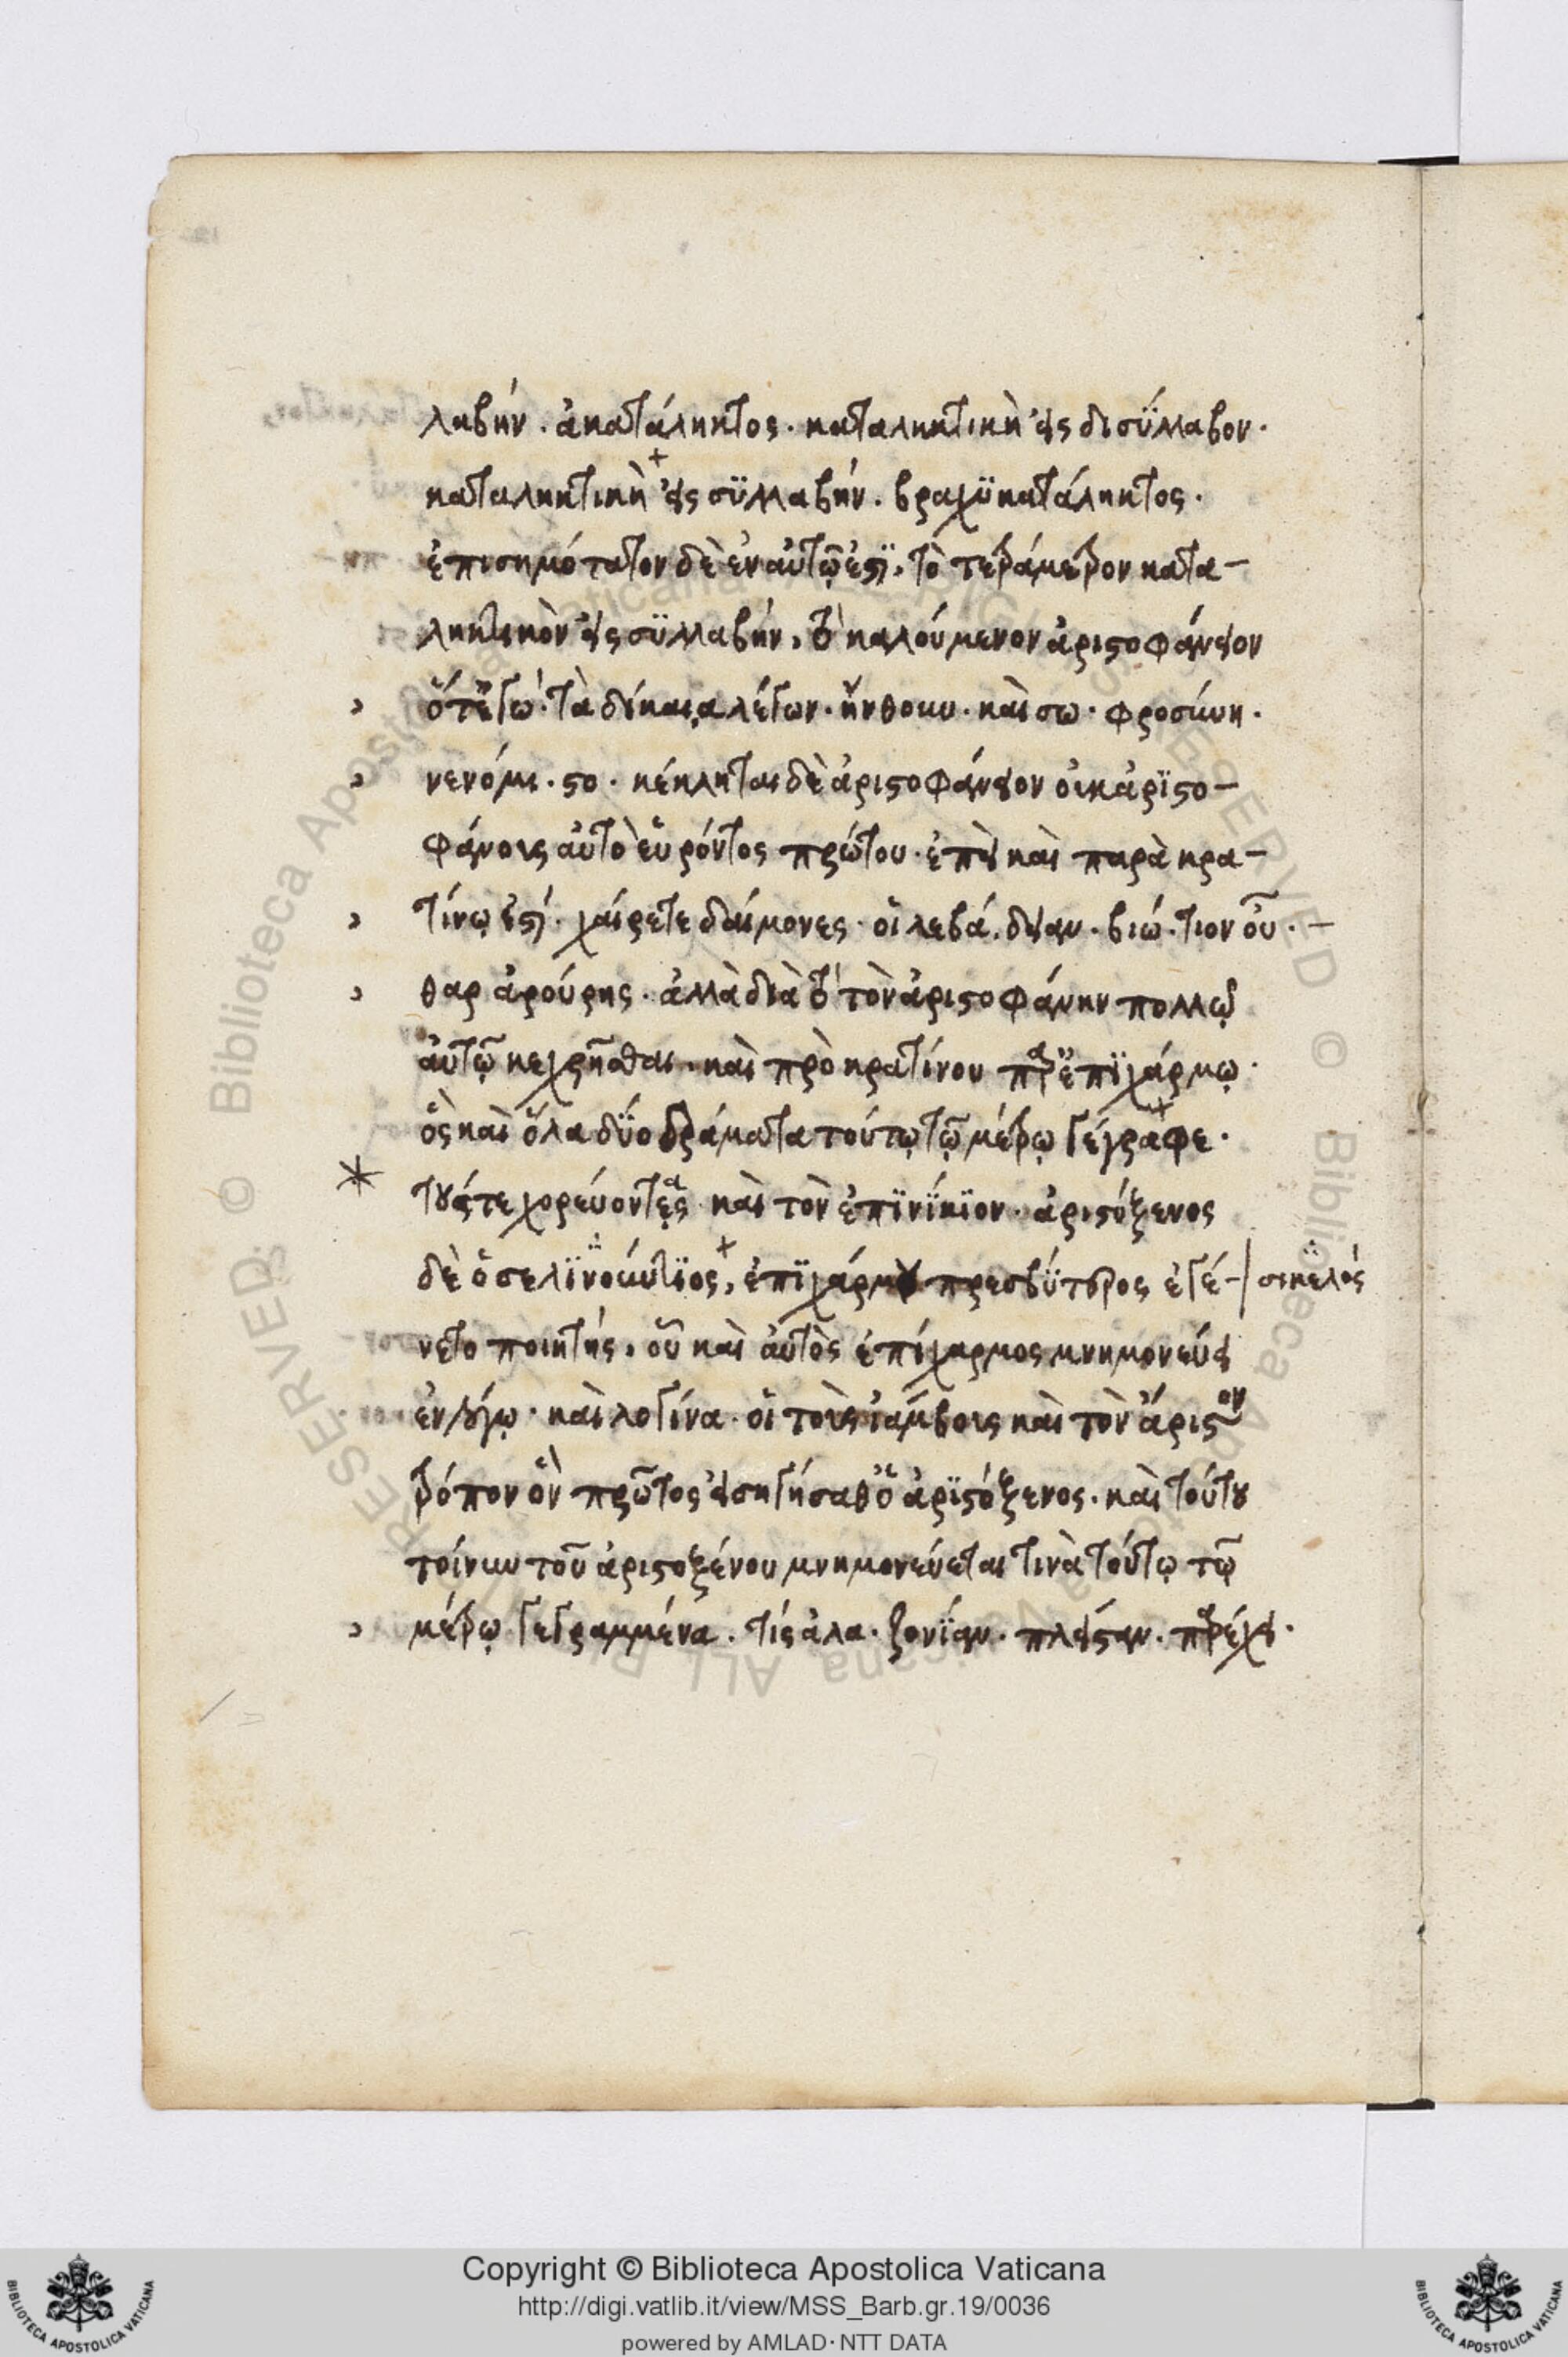 λαβήν. ἀκατάληκτος. καταληκτικὴ εἰς δισύλλαβον.
καταληκτικὴ εἰς συλλαβήν. βραχυκατάληκτος.
ἐπισημότατον δὲ ἐν αὐτῷ ἐστϊ, τὸ τετράμετρον κατα–
ληκτικὸν εἰς συλλαβήν, τὸ καλούμενον ἀριστοφάνειον
ὅτ᾽ ἐγὼ· τὰ δίκαια λέγων. ἤνθουν. καὶ σω. φροσύνη.
νενόμι. στο. κέκληται δὲ ἀριστοφάνειον οὐκ ἀριστο–
φάνους αὐτὸ εὑρόντος πρώτου. ἐπεὶ καὶ παρὰ κρα–
τίνῳ ἐστί. χαίρετε δαίμονες. οἳ λεβά. δειαν. βιώ. τιον οὖ.–
θαρ ἀρούρης. ἀλλὰ διὰ τὸ τὸν ἀριστοφάνην πολλῷ
αὐτῷ κεχρῆσθαι. καὶ πρὸ κρατίνου παρ᾽ ἐπϊχάρμῳ.
ὃς καὶ ὅλα δύο δράματα τούτῳ τῷ μέτρῳ γέγραφε.
τούς τε χορεύοντας καὶ τὸν ἐπϊνίκϊον. ἀριστόξενος
δὲ ὁ σελϊνούντϊος, ἐπϊχάρμου πρεσβύτερος ἐγέ–| σικελός
νετο ποιητής, οὗ καὶ αὐτὸς ἐπίχαρμος μνημονεύει
ἐν λόγῳ. καὶ λογίνα. οἳ τοὺς ἰάμβους καὶ τὸν ἄριστον
τρόπον ὃν πρῶτος εἰσηγήσαθ᾽ ὁ ἀριστόξενος. καὶ τούτου
τοίνυν τοῦ ἀριστοξένου μνημονεύεται τινὰ τούτῳ τῷ
μέτρῳ γεγραμμένα. τίς ἀλα. ζονΐαν. πλείσταν. παρέχει.
Copyright © Biblioteca Apostolica Vaticana
http://digi.vatlib.it/view/MSS_Barb.gr.19/0036
powered by AMLAD·NTT DATA